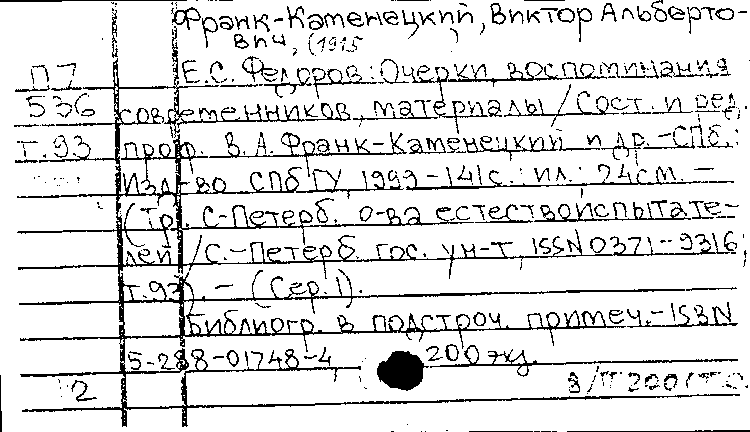 Франк-Каменецкий, Виктор Альберто-
вич, (1915 )
П7 Е.С. Федоров: Очерки, воспоминания
536 современников, материалы / Сост. и ред.
т.93 проф. В.А. Франк-Каменецкий и др.-СПб.:
Изд-во СПбГУ, 1999-141с.: ил.; 24см. -
(Тр. С-Петерб. о-ва естествоиспытате-
лей / С.-Петерб. гос. ун-т, ISSN 0371-9316;
т.93). - (Сер.1).
Библиогр. в подстроч. примеч.-ISBN
5-288-01748-4, 200 экз.
2